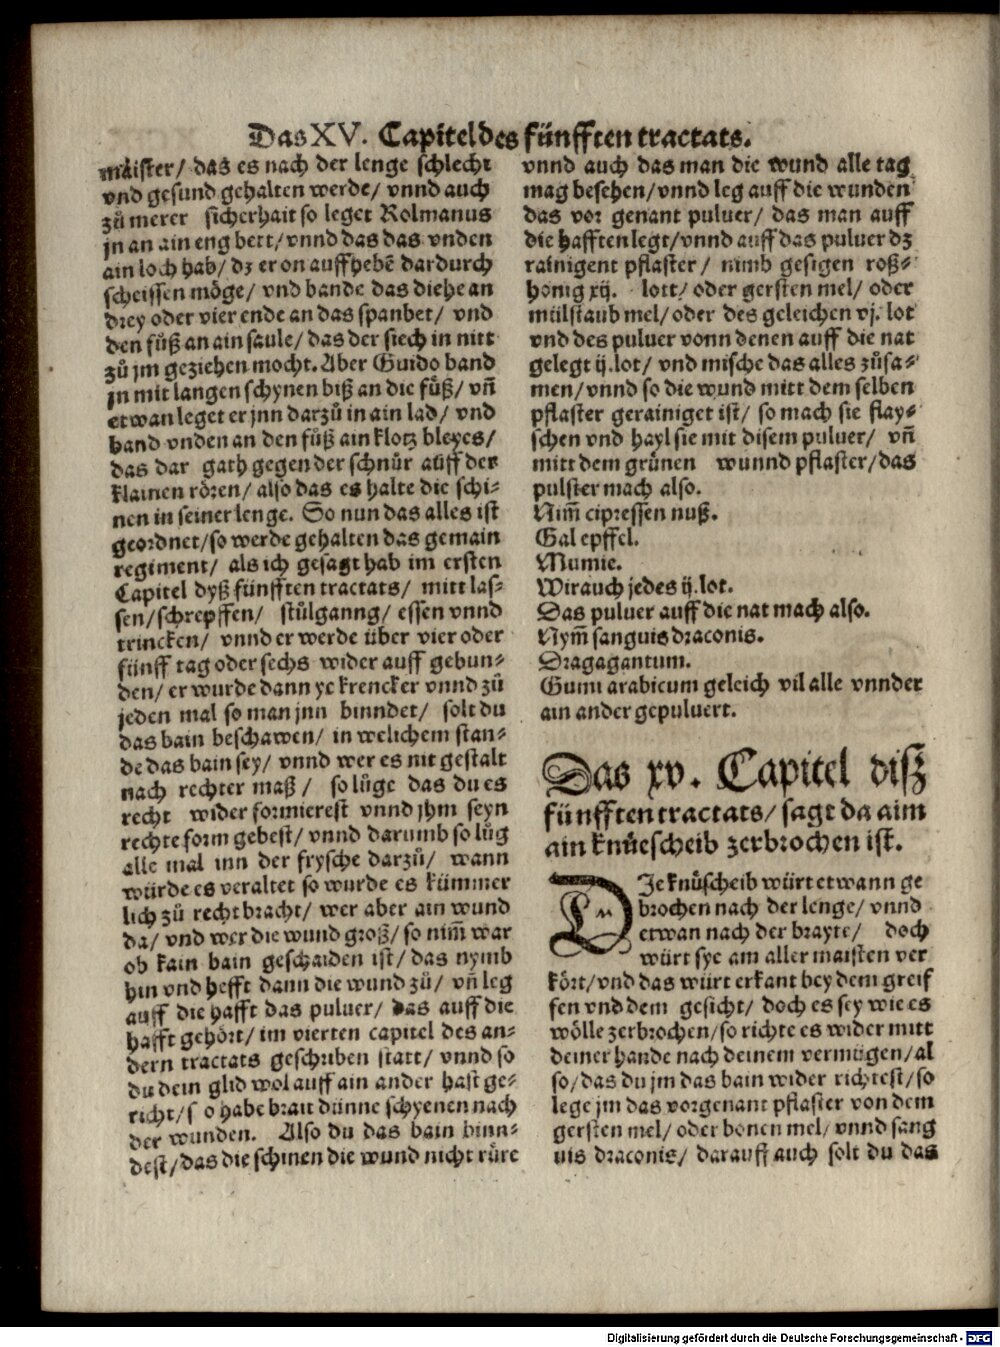 Das XV. Capitel des fünfften tractats.
maister/ das es nach der lenge schlecht
vnd gesund gehalten werde/ vnnd auch
zů merer sicherhait so leget Rolmanus
jn an ain eng bett/ vnnd das das vnden
ain loch hab/ dz er on auffhebē dardurch
scheissen möge/ vnd bande das diehe an
drey oder vier ende an das spanbet/ vnd
den fůß an ain saule/ das der siech in nitt
zů jm geziehen mocht. Aber Guido band
jn mit langen schynen biß an die füß/ vñ
etwan leget er jnn darzů in ain lad/ vnd
band vnden an den fůß ain klotz bleyes/
das dar gath gegen der schnůr auff der
klainen rören/ also das es halte die schi-
nen in seiner lenge. So nun das alles ist
geordnet/ so werde gehalten das gemain
regiment/ als ich gesagt hab im ersten
Capitel dyß fünfften tractats/ mitt las-
sen/ schrepffen/ stůlganng/ essen vnnd
trincken/ vnnd er werde über vier oder
fünff tag oder sechs wider auff gebun-
den/ er wurde dann ye krencker vnnd zů
jeden mal so man jnn binndet/ solt du
das bain beschawen/ in welichem stan-
de das bain sey/ vnnd wer es nit gestalt
nach rechter maß/ so lůge das du es
recht wider formierest vnnd jhm seyn
rechte form gebest/ vnnd darumb so lůg
alle mal inn der frysche darzů/ wann
würde es veraltet so wurde es kümmer
lich zů recht bracht/ wer aber ain wund
da/ vnd wer die wund groß/ so nim̄ war
ob kain bain geschaiden ist/ das nymb
hin vnd hefft dann die wund zů/ vñ leg
auff die hafft das puluer/ das auff die
hafft gehört/ im vierten capitel des an-
dern tractats geschriben statt/ vnnd so
du dein glid wol auff ain ander hast ge-
richt/ s o habe brait dünne schyenen nach
der wunden. Also du das bain binn-
dest/ das die schinen die wund nicht růre
vnnd auch das man die wund alle tag
mag besehen/ vnnd leg auff die wunden
das vor genant puluer/ das man auff
die hafften legt/ vnnd auff das puluer dz
rainigent pflaster/ nimb gesigen roß-
honig xij. lott/ oder gersten mel/ oder
mülstaub mel/ oder des geleichen vj. lot
vnd des puluer vonn denen auff die nat
gelegt ij. lot/ vnd mische das alles zůsa-
men/ vnnd so die wund mitt dem selben
pflaster gerainiget ist/ so mach sie flay-
schen vnd hayl sie mit disem puluer/ vñ
mitt dem grůnen wunnd pflaster/ das
pulster mach also.
Nim̄ cipressen nuß.
Gal epffel.
Mumie.
Wirauch jedes ij. lot.
Das puluer auff die nat mach also.
Nym̄ sanguis draconis.
Dragagantum.
Gumi arabicum geleich vil alle vnnder
ain ander gepuluert.
Das xv. Capitel diß
fünfften tractats/ sagt da aim
ain knüescheib zerbrochen ist.
DIe knůscheib würt etwann ge
brochen nach der lenge/ vnnd
etwan nach der brayte/ doch
würt sye am aller maisten ver
kört/ vnd das würt erkant bey dem greif
fen vnd dem gesicht/ doch es sey wie es
wölle zerbrochen/ so richte es wider mitt
deiner hande nach deinem vermügen/ al
so/ das du jm das bain wider richtest/ so
lege jm das vorgenant pflaster von dem
gersten mel/ oder bonen mel/ vnnd sang
uis draconis/ darauff auch solt du das
Digitalisierung gefördert durch die Deutsche Forschungsgemeinschaft - DFG